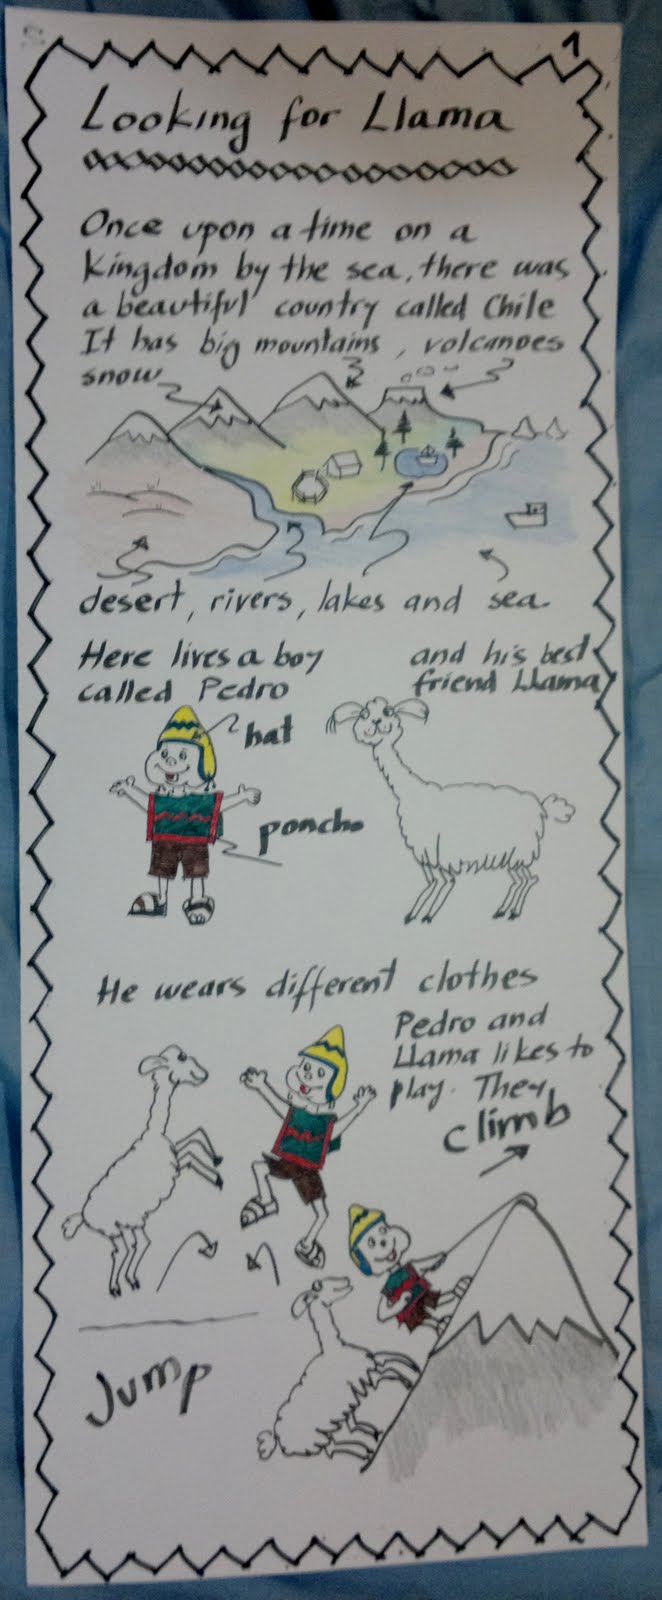 1
Looking for Llama
Once upon a time on a
kingdom by the sea, there was
a beautiful country called Chile
It has big mountains, volcanoes
snow
desert, rivers, lakes and sea.
Here lives a boy
called Pedro
and his best
friend Llama
hat
poncho
He wears different clothes
Pedro and
Llama likes to
play. They
climb
Jump